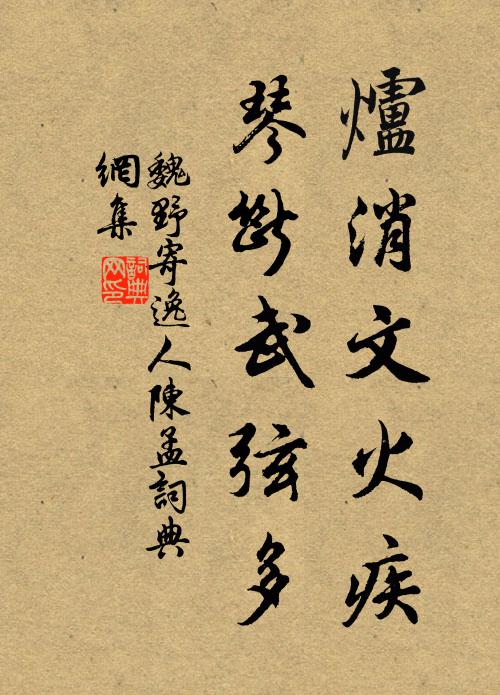 爐消文火疾
琴斷武弦多
魏野寄逸人陳孟詞典
網集
詞典
网印